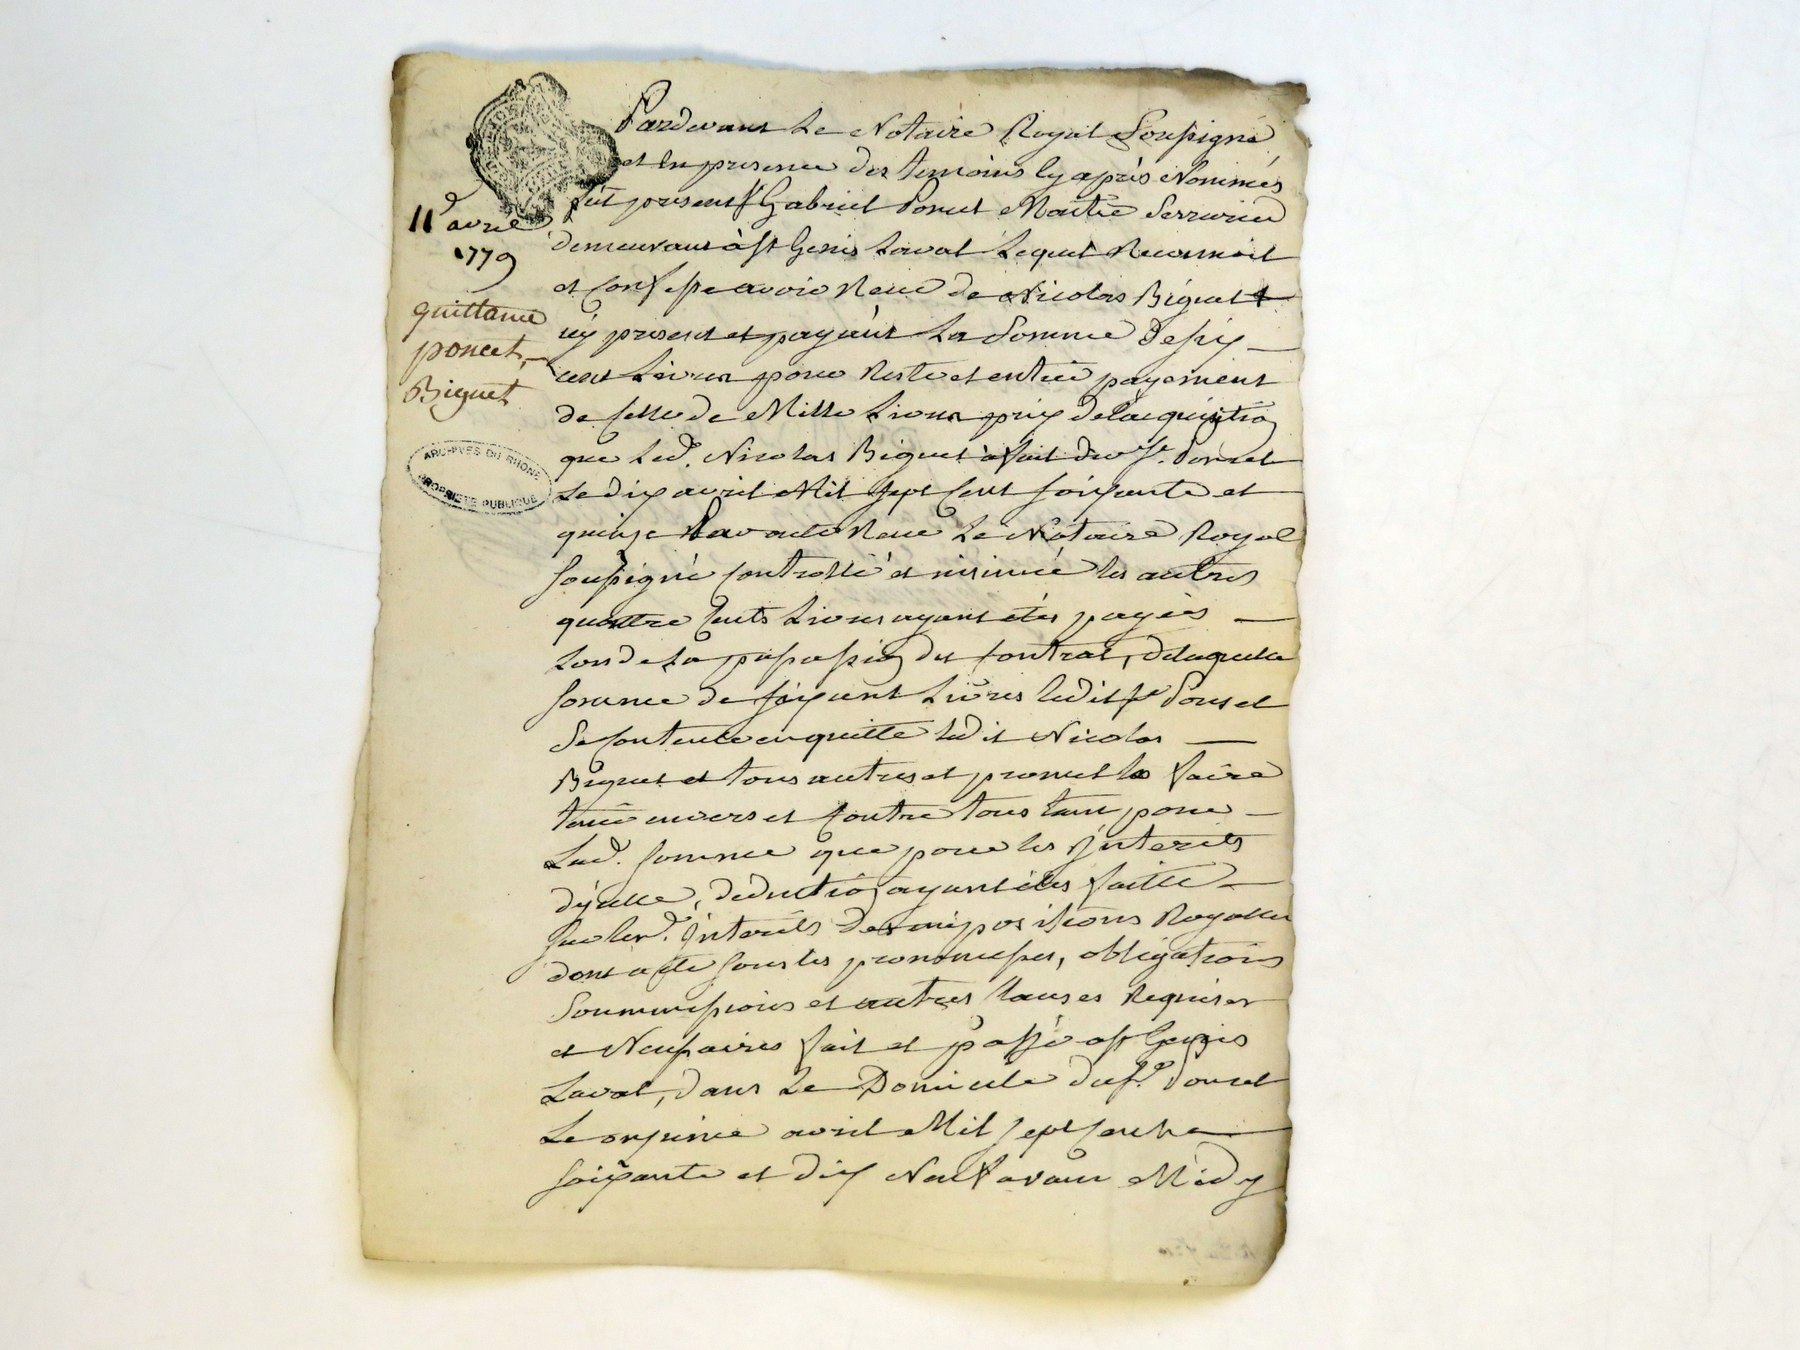 11e avril
1779
quittance
poncet,
Biguet
ARCHIVES DU RHONE
PROPRIETE PUBLIQUE
Pardevant Le Notaire Royal Soussigné
et En presence des temoins Cy après Nommés
fût present sr Gabriel Poncet Maitre Serrurier
demeurant à st Genis Laval Lequel Reconnoit
et Confesse avoir Receu de Nicolas Biguet
icy present et payant La Somme de six
cent Livres pour Reste et entier payement
de Celle de Mille Livres prix de lacquisition
que Led. Nicolas Biguet à fait du sr. Poncet
Le dix avril Mil sept Cent soixante et
quinze Par acte Receu Le Notaire Royal
soussigné Controllé et insinué les autres
quattre Cents Livres ayant étés payés
Lors de La passation du Contrat, de laquelle
somme de six cent Livres ledit sr Poncet
se Contente en quitte ledit Nicolas
Biguet et tous autres et promet le faire
tenir envers et Contre tous tant pour
Lad. somme que pour les Interets
d'ycelle, déduction ayant étés faitte
sur lesd. Interêts des impositions Royalles
dont acte sous les promesses, obligations
Soummissions et autres Clauses Requises
et Necessaires fait et passé à st Genis
Laval, dans Le Domicile du sr. Poncet
Le onzieme avril Mil sept Cent
soixante et dix Neuf avant Midy